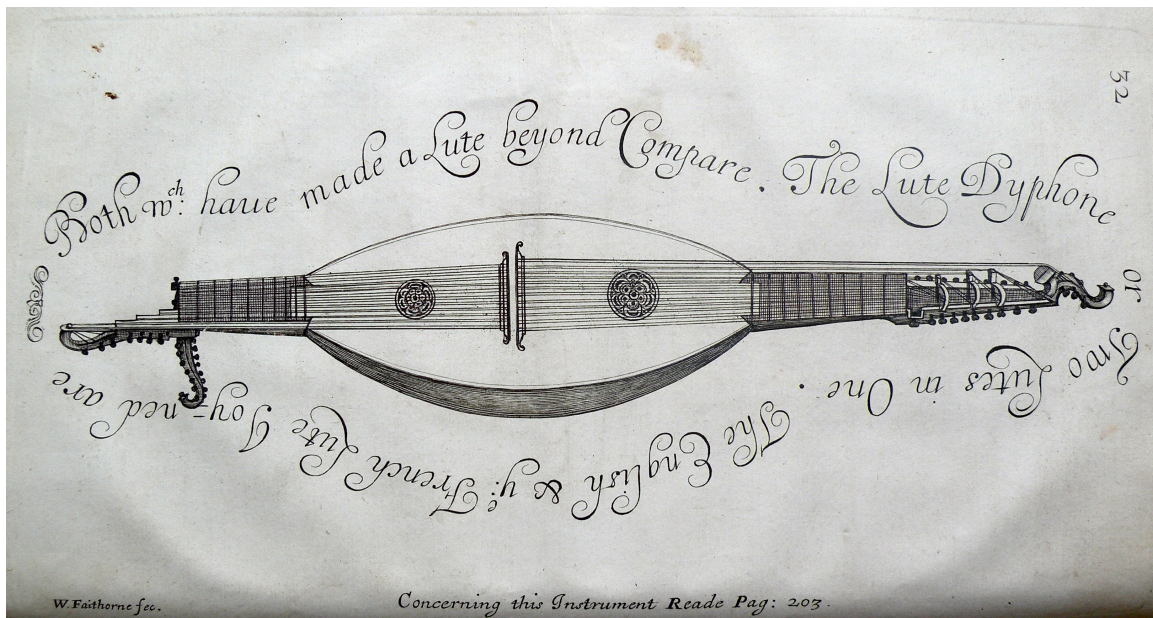 32
The Lute Dyphone
or
Two Lutes in One.
The English & yͤ: French Lute Joy=ned are
Both wͨͪ: haue made a Lute beyond Compare.
W. Faithorne fec.
Concerning this Instrument Reade Pag: 203.